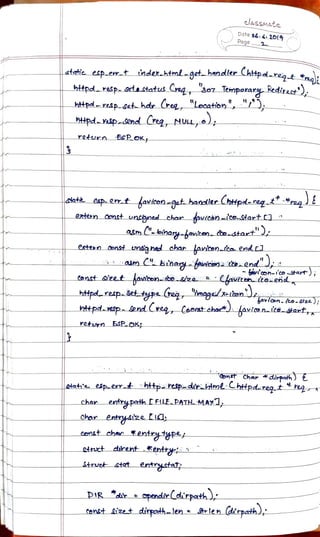 classmate
Date 06.6.2019
Page 2
static esp_err_t index_html_get_handler (httpd_req_t *req){
httpd_resp_set_status (req, "307 Temporary Redirect");
httpd_resp_set_hdr (req, "Location", "/");
httpd_resp_send (req, NULL, 0);
return ESP_OK;
}
static esp_err_t favicon_get_handler (httpd_req_t *req) {
extern const unsigned char favicon_ico_start []
asm ("_binary_favicon_ico_start");
extern const unsigned char favicon_ico_end []
asm ("_binary_favicon_ico_end");
const size_t favicon_ico_size = (favicon_ico_end
- favicon_ico_start);
httpd_resp_set_type (req, "image/x-icon");
httpd_resp_send (req, (const char*) favicon_ico_start,
favicon_ico_size);
return ESP_OK;
}
const char *dirpath) {
static esp_err_t http_resp_dir_html (httpd_req_t *req,
char entrypath [FILE_PATH_MAX];
char entrysize [16];
const char *entrytype;
struct dirent *entry;
struct stat entrystat;
DIR *dir = opendir (dirpath);
const size_t dirpath_len = strlen (dirpath);